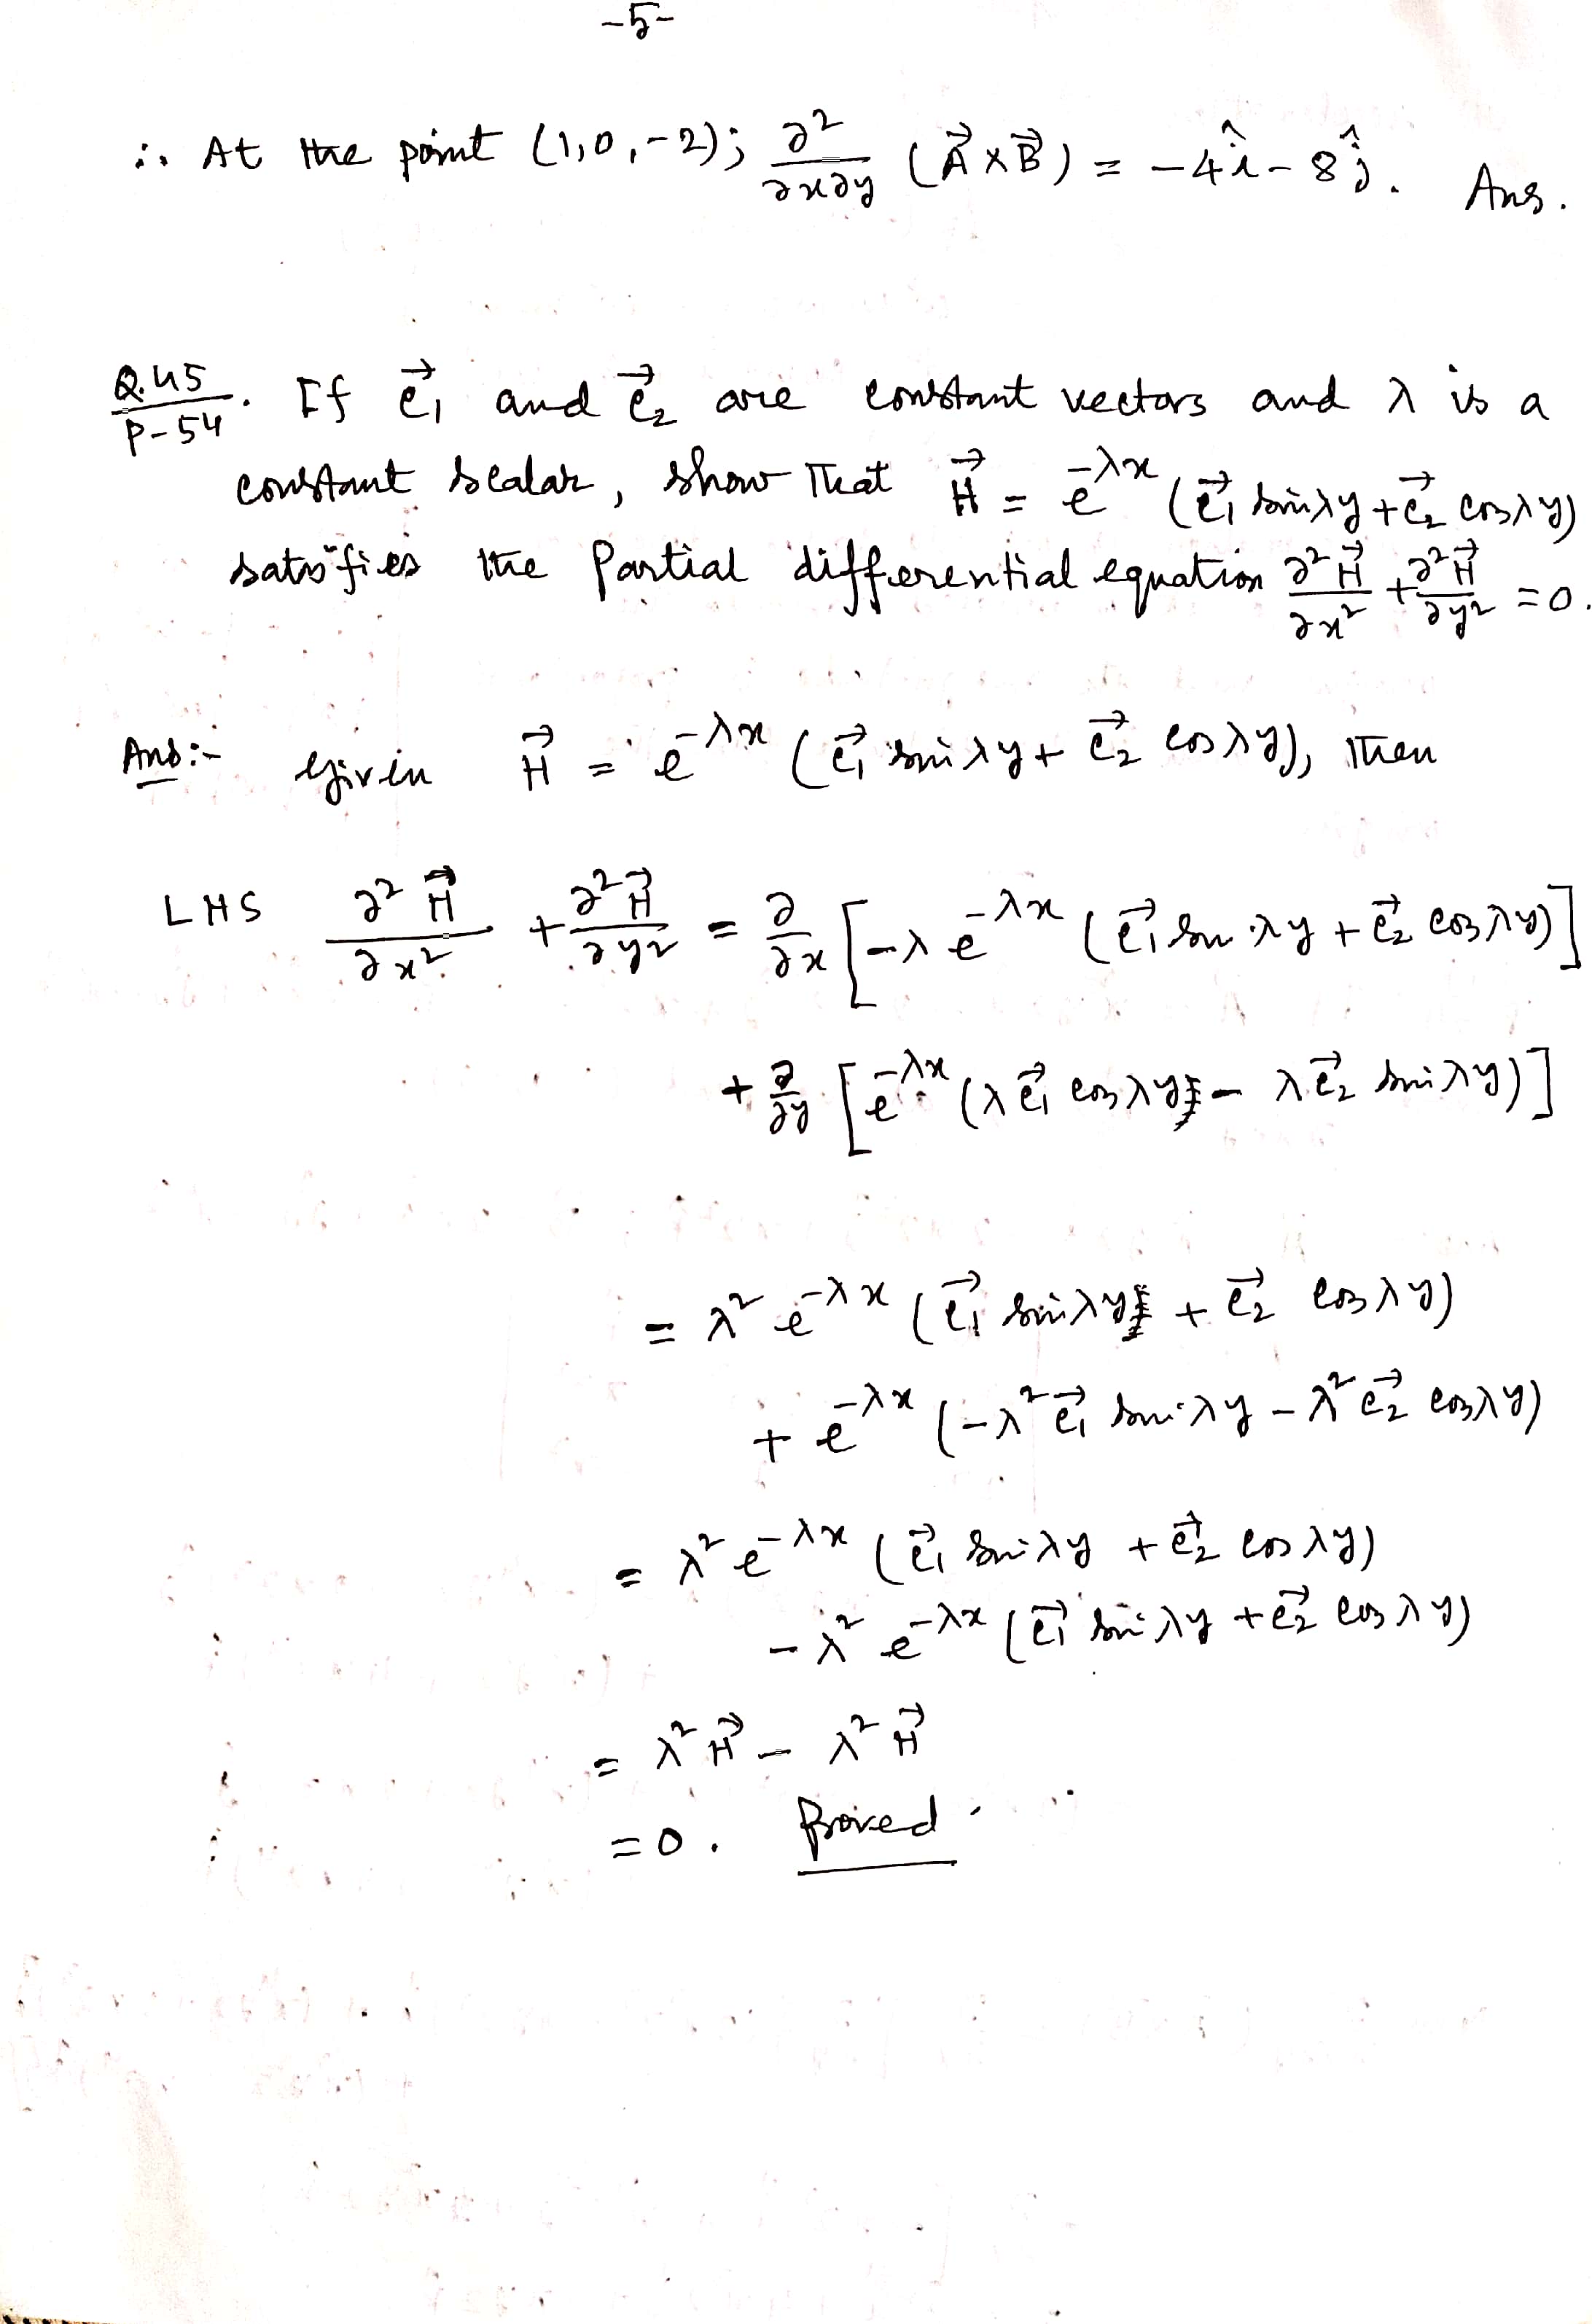 -5-
∴ At the point (1,0,-2); ∂²/∂x∂y (A⃗×B⃗) = -4î - 8ĵ. Ans.
Q.45/P-54. If c⃗₁ and c⃗₂ are constant vectors and λ is a
constant scalar, show that H⃗ = e^(-λx) (c⃗₁ sinλy + c⃗₂ cosλy)
satisfies the Partial differential equation ∂²H⃗/∂x² + ∂²H⃗/∂y² = 0.
Ans:- Given H⃗ = e^(-λx) (c⃗₁ sinλy + c⃗₂ cosλy), then
LHS ∂²H⃗/∂x² + ∂²H⃗/∂y² = ∂/∂x [-λ e^(-λx) (c⃗₁ sinλy + c⃗₂ cosλy)]
+ ∂/∂y [e^(-λx) (λc⃗₁ cosλy - λc⃗₂ sinλy)]
= λ² e^(-λx) (c⃗₁ sinλy + c⃗₂ cosλy)
+ e^(-λx) (-λ²c⃗₁ sinλy - λ²c⃗₂ cosλy)
= λ² e^(-λx) (c⃗₁ sinλy + c⃗₂ cosλy)
- λ² e^(-λx) (c⃗₁ sinλy + c⃗₂ cosλy)
= λ²H⃗ - λ²H⃗
= 0. Proved.